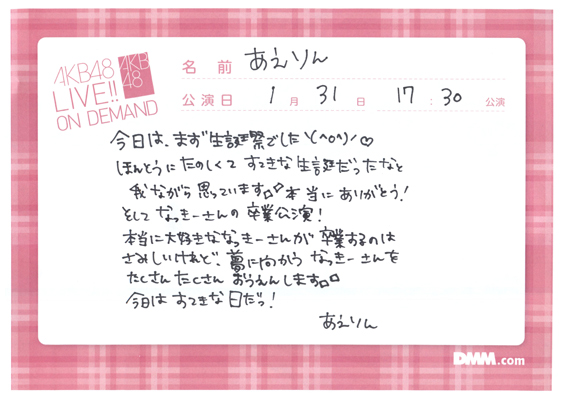 AKB48
LIVE!!
ON DEMAND
AKB
48
名前 あえりん
公演日 1月31日 17:30 公演
今日は、まず生誕祭でした\(^o^)/♡
ほんとうにたのしくてすてきな生誕だったなと
我ながら思っています。本当にありがとう!
そしてなっきーさんの卒業公演!
本当に大好きななっきーさんが卒業するのは
さみしいけれど、夢に向かうなっきーさんを
たくさんたくさんおうえんします。
今日はすてきな日だっ!
あえりん
DMM.com